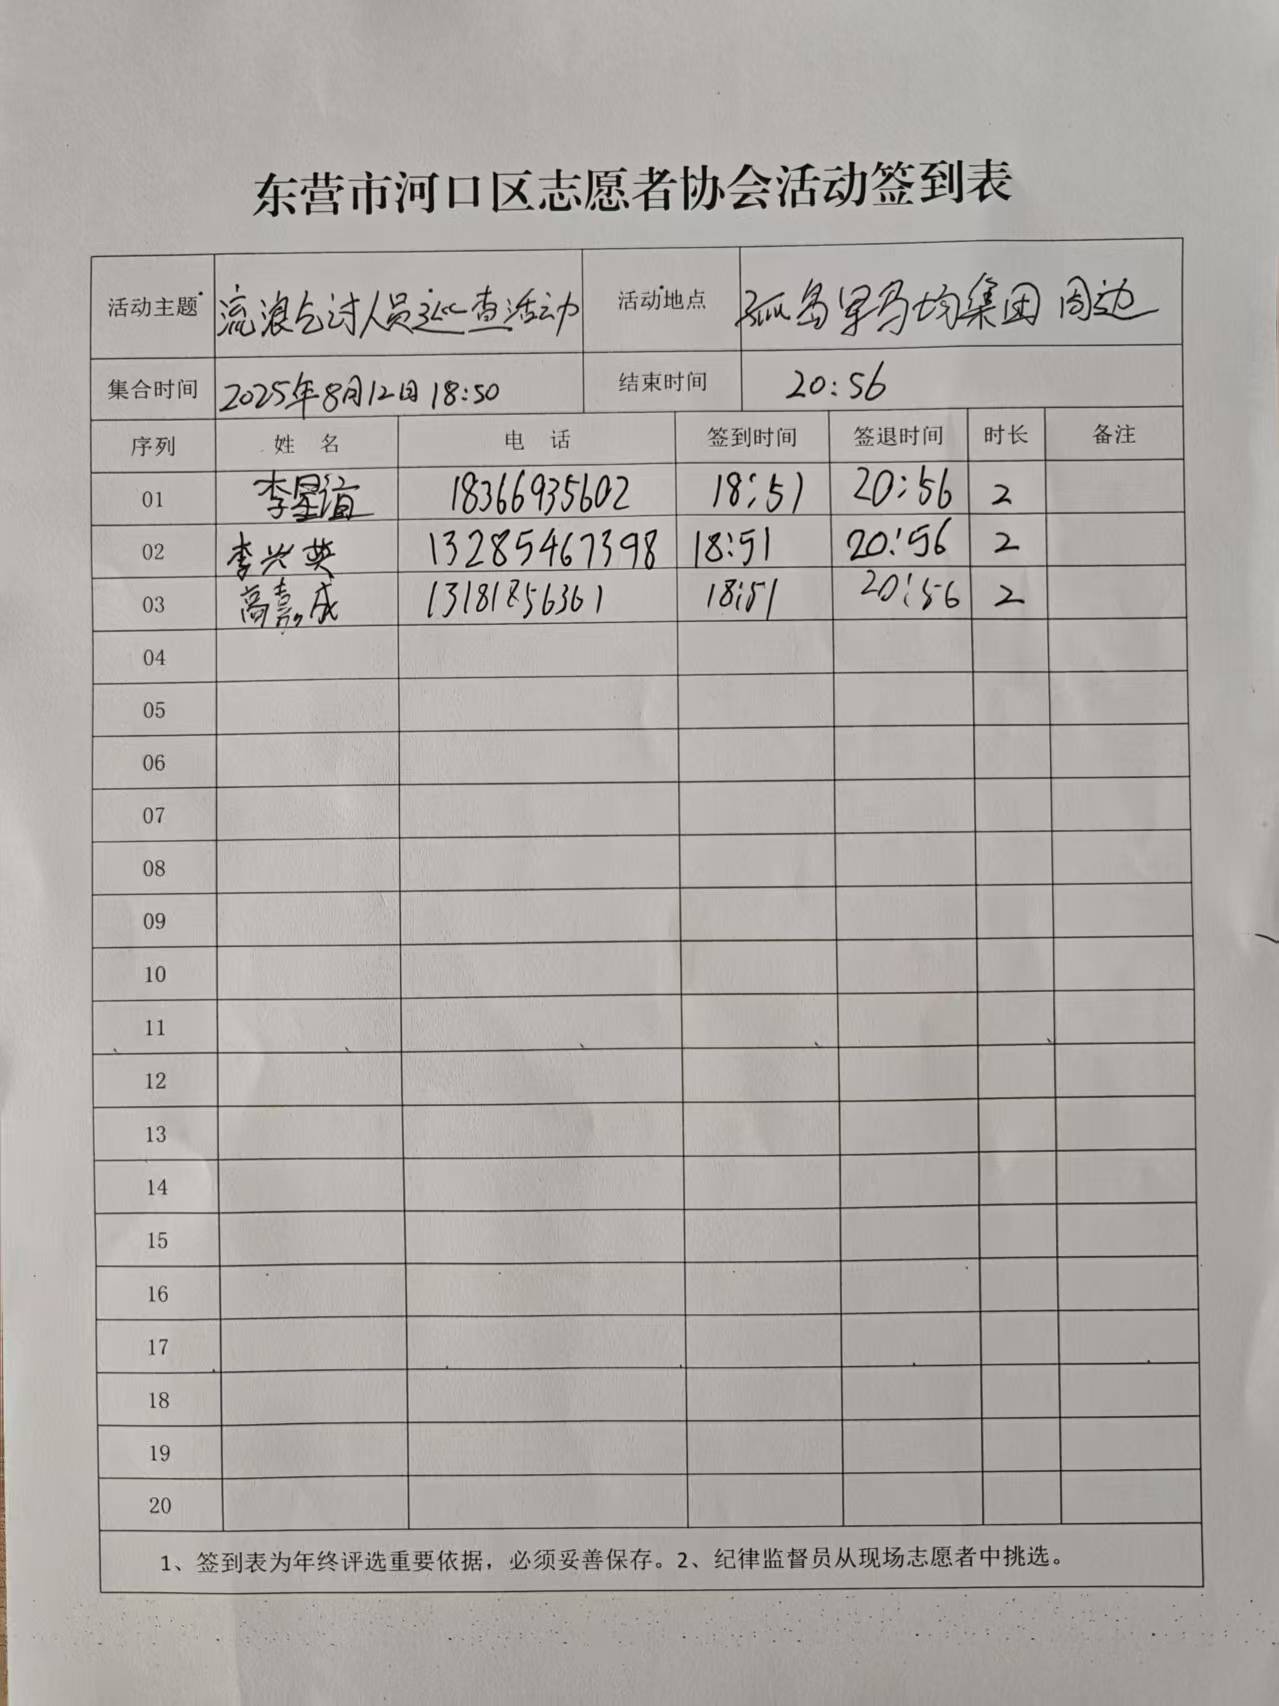 东营市河口区志愿者协会活动签到表
活动主题 流浪乞讨人员巡查活动 活动地点 孤岛军马场集团周边
集合时间 2025年8月12日18:50 结束时间 20:56
序列 姓名 电话 签到时间 签退时间 时长 备注
01 李星谊 18366935602 18:51 20:56 2
02 李兴英 13285467398 18:51 20:56 2
03 高嘉成 13181856361 18:51 20:56 2
04
05
06
07
08
09
10
11
12
13
14
15
16
17
18
19
20
1、签到表为年终评选重要依据，必须妥善保存。2、纪律监督员从现场志愿者中挑选。